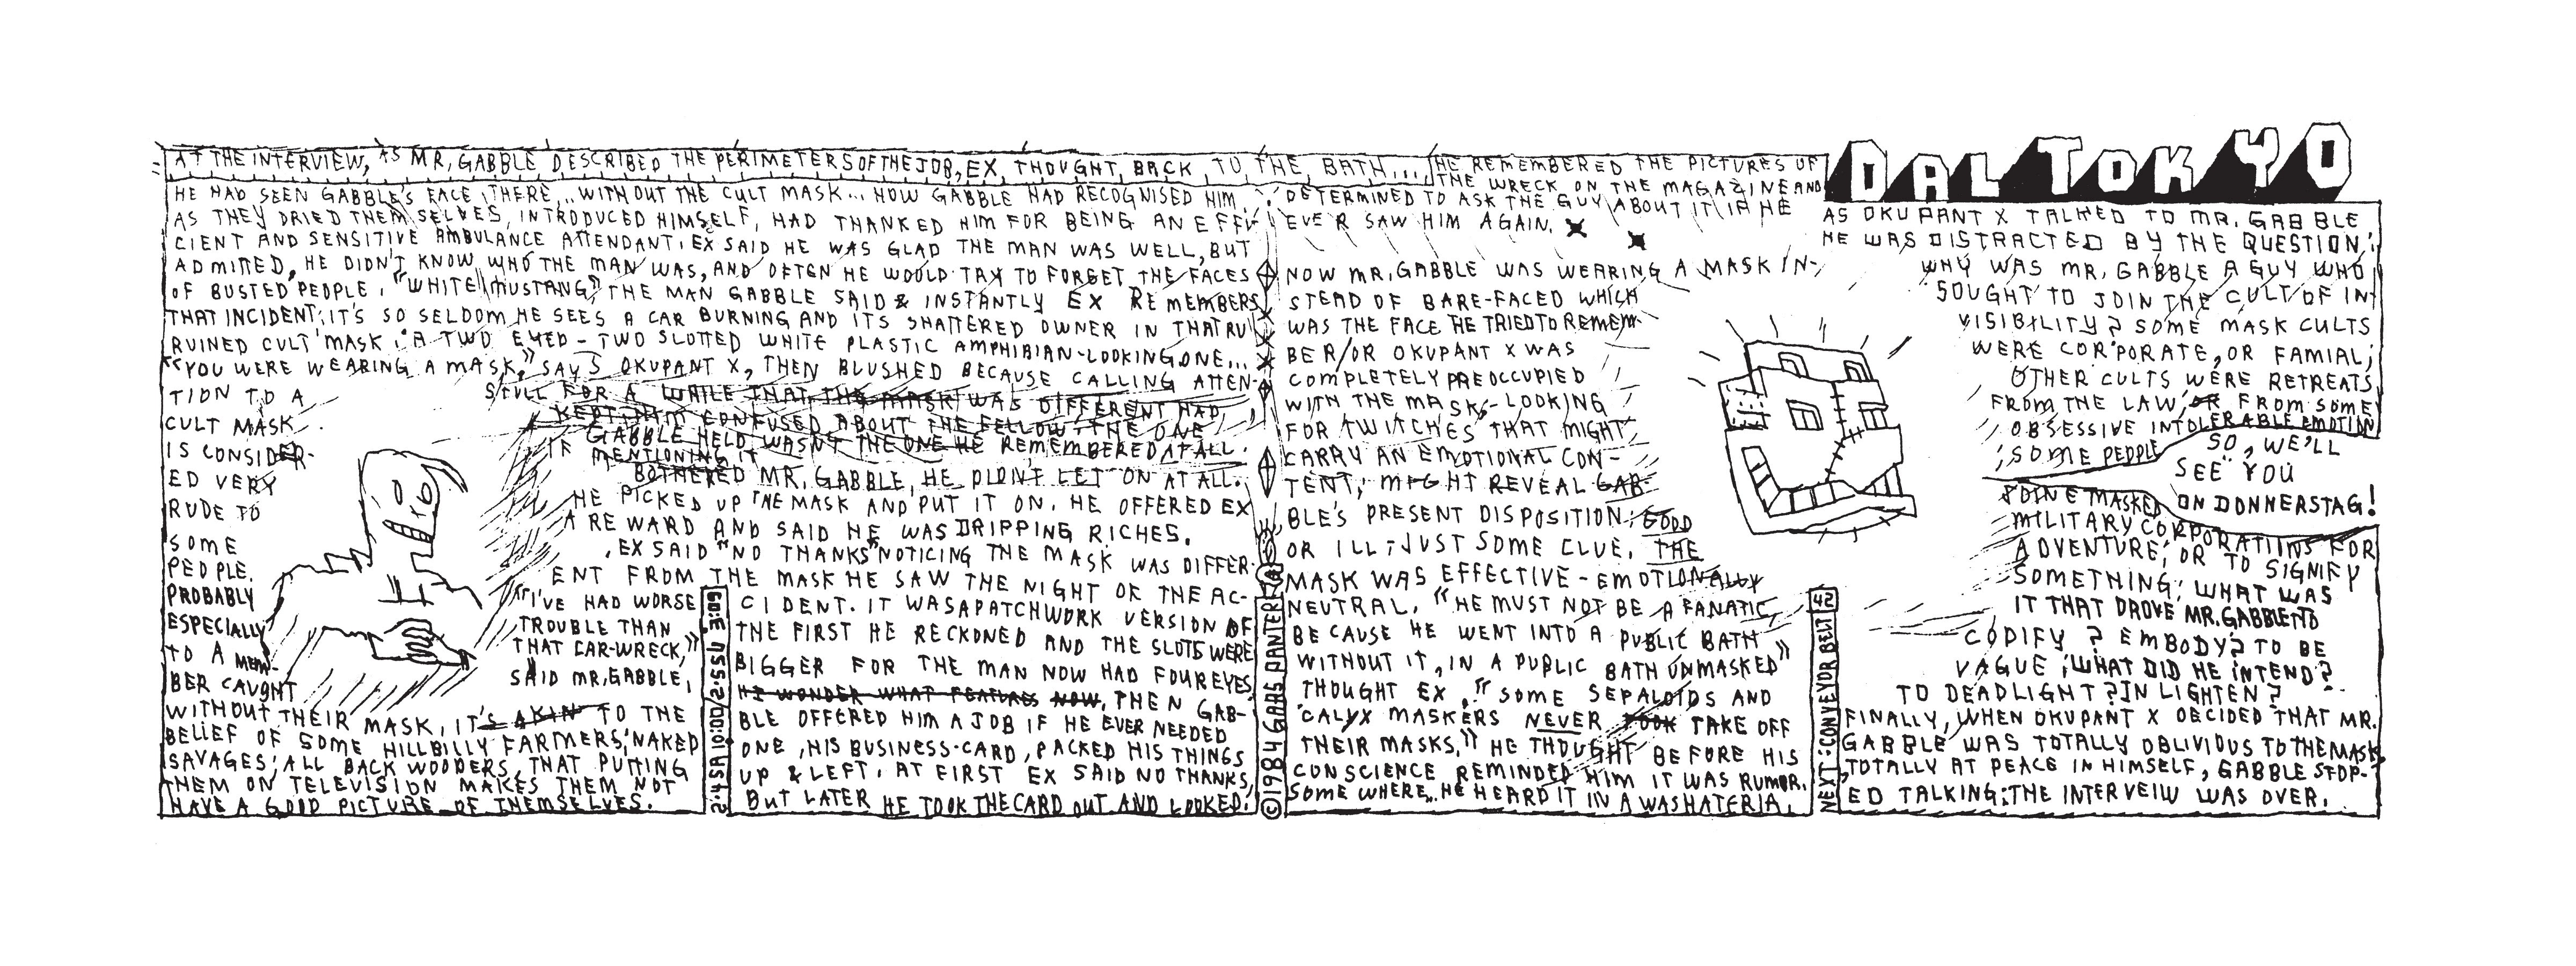 AT THE INTERVIEW, AS MR. GABBLE DESCRIBED THE PERIMETERS OF THE JOB, EX THOUGHT BACK TO THE BATH...
HE HAD SEEN GABBLE'S FACE THERE... WITHOUT THE CULT MASK... HOW GABBLE HAD RECOGNISED HIM,
AS THEY DRIED THEMSELVES, INTRODUCED HIMSELF, HAD THANKED HIM FOR BEING AN EFFI-
CIENT AND SENSITIVE AMBULANCE ATTENDANT. EX SAID HE WAS GLAD THE MAN WAS WELL, BUT
ADMITED, HE DIDN'T KNOW WHO THE MAN WAS, AND OFTEN HE WOULD TRY TO FORGET THE FACES
OF BUSTED PEOPLE. "WHITE MUSTANG," THE MAN GABBLE SAID & INSTANTLY EX REMEMBERS
THAT INCIDENT; IT'S SO SELDOM HE SEES A CAR BURNING AND ITS SHATTERED OWNER IN THAT RU
RUINED CULT MASK: A TWO EYED - TWO SLOTTED WHITE PLASTIC AMPHIBIAN-LOOKING ONE...
"YOU WERE WEARING A MASK," SAYS OKUPANT X, THEN BLUSHED BECAUSE CALLING ATTEN-
TION TO A
CULT MASK
IS CONSIDER-
ED VERY
RUDE TO
SOME
PEOPLE.
PROBABLY
ESPECIALLY
TO A MEM-
BER CAUGHT
WITHOUT THEIR MASK, IT'S AKIN TO THE
BELIEF OF SOME HILLBILLY FARMERS, NAKED
SAVAGES, ALL BACK WOODERS, THAT PUTTING
THEM ON TELEVISION MAKES THEM NOT
HAVE A GOOD PICTURE OF THEMSELVES.
"I'VE HAD WORSE
TROUBLE THAN
THAT CAR-WRECK,"
SAID MR. GABBLE,
STILL FOR A WHILE THAT THE MASK WAS DIFFERENT HAD
KEPT HIM CONFUSED ABOUT THE FELLOW: THE ONE
GABBLE HELD WASN'T THE ONE HE REMEMBERED AT ALL.
IF MENTIONING IT
BOTHERED MR. GABBLE, HE DIDN'T LET ON AT ALL.
HE PICKED UP THE MASK AND PUT IT ON. HE OFFERED EX
A REWARD AND SAID HE WAS DRIPPING RICHES.
EX SAID "NO THANKS" NOTICING THE MASK WAS DIFFER-
ENT FROM THE MASK HE SAW THE NIGHT OF THE AC-
CIDENT. IT WAS A PATCHWORK VERSION OF
THE FIRST HE RECKONED AND THE SLOTS WERE
BIGGER FOR THE MAN NOW HAD FOUR EYES.
HE WONDER WHAT FEATURES NOW, THEN GAB-
BLE OFFERED HIM A JOB IF HE EVER NEEDED
ONE, HIS BUSINESS-CARD, PACKED HIS THINGS
UP & LEFT. AT FIRST EX SAID NO THANKS,
BUT LATER HE TOOK THE CARD OUT AND LOOKED.
©1984 GARY PANTER
HE REMEMBERED THE PICTURES OF
THE WRECK ON THE MAGAZINE AND
DETERMINED TO ASK THE GUY ABOUT IT IF HE
EVER SAW HIM AGAIN.
NOW MR. GABBLE WAS WEARING A MASK IN-
STEAD OF BARE-FACED WHICH
WAS THE FACE HE TRIED TO REMEM-
BER/OR OKUPANT X WAS
COMPLETELY PREOCCUPIED
WITH THE MASK,-LOOKING
FOR TWITCHES THAT MIGHT
CARRY AN EMOTIONAL CON-
TENT, MIGHT REVEAL GAB-
BLE'S PRESENT DISPOSITION: GOOD
OR ILL; JUST SOME CLUE. THE
MASK WAS EFFECTIVE - EMOTIONALLY
NEUTRAL. "HE MUST NOT BE A FANATIC,
BECAUSE HE WENT INTO A PUBLIC BATH
WITHOUT IT, IN A PUBLIC BATH UNMASKED"
THOUGHT EX, "SOME SEPALOIDS AND
CALYX MASKERS NEVER TOOK TAKE OFF
THEIR MASKS," HE THOUGHT BEFORE HIS
CONSCIENCE REMINDED HIM IT WAS RUMOR.
SOME WHERE... HE HEARD IT IN A WASHATERIA.
NEXT: CONVEYOR BELT 42
DAL TOKYO
AS OKUPANT X TALKED TO MR. GABBLE
HE WAS DISTRACTED BY THE QUESTION:
WHY WAS MR. GABBLE A GUY WHO
SOUGHT TO JOIN THE CULT OF IN-
VISIBILITY? SOME MASK CULTS
WERE CORPORATE, OR FAMIAL;
OTHER CULTS WERE RETREATS
FROM THE LAW OR FROM SOME
OBSESSIVE INTOLERABLE EMOTION
SOME PEOPLE
SO, WE'LL
SEE YOU
ON DONNERSTAG!
JOINE MASKED
MILITARY CORPORATIINS FOR
ADVENTURE, OR TO SIGNIFY
SOMETHING; WHAT WAS
IT THAT DROVE MR. GABBLE TO
CODIFY? EMBODY? TO BE
VAGUE; WHAT DID HE INTEND?
TO DEADLIGHT? IN LIGHTEN?
FINALLY, WHEN OKUPANT X DECIDED THAT MR.
GABBLE WAS TOTALLY OBLIVIOUS TO THE MASK,
TOTALLY AT PEACE IN HIMSELF, GABBLE STOP-
ED TALKING: THE INTERVEIW WAS OVER.